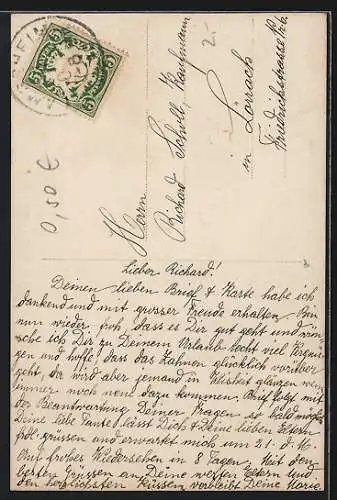 5
5
5
5
0,50 €
2.-
Herrn
Richard Scholl, Kaufmann
in Lörrach
Friedrichstrasse
Lieber Richard!
Deinen lieben Brief & Karte habe ich
dankend und mit grosser Freude erhalten. Bin
nun wieder froh, dass es Dir gut geht und wün-
sche ich Dir zu Deinem Urlaub recht viel Vergnü-
gen und hoffe, dass das Zahnen glücklich vorüber
geht, da wird aber jemand in glänzen wenn
immer noch neue dazu kommen. Brief folgt mit
der Beantwortung Deiner Fragen so bald möglich
Deine liebe Tante lässt Dich & Deine lieben Eltern
frdl. grüssen und erwartet mich um 21. d. M.
Auf frohes Wiedersehen in 8 Tagen. Mit den
besten Grüssen an Deine werten Eltern und
den herzlichsten Küssen verbleibt Deine Marie